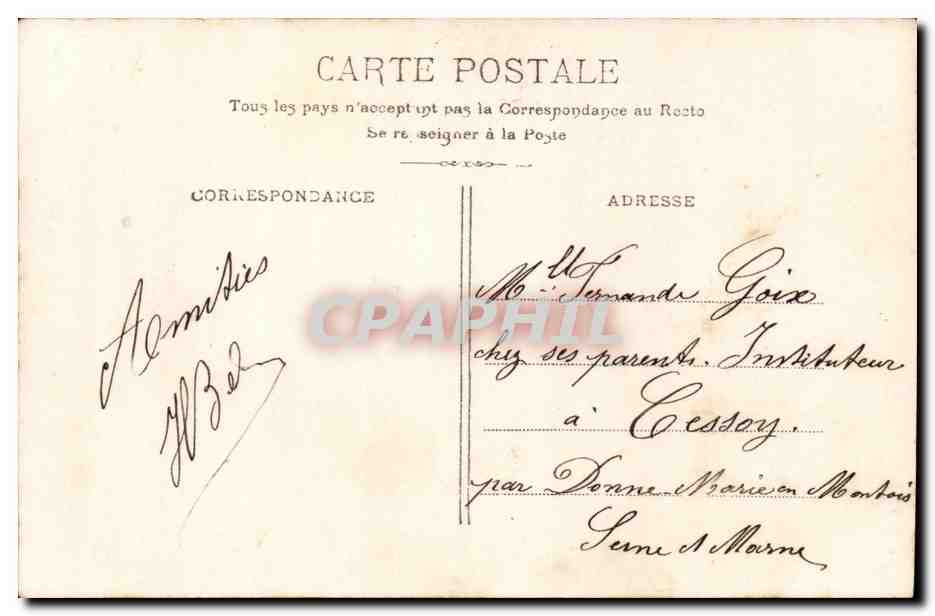 CARTE POSTALE
Tous les pays n'acceptent pas la Correspondance au Recto
Se renseigner à la Poste
CORRESPONDANCE
Amitiés
ADRESSE
Mlle Fernande Goix
chez ses parents. Instituteur
à Cessoy.
par Donne-Marie en Montois
Seine et Marne
CPAPHIL